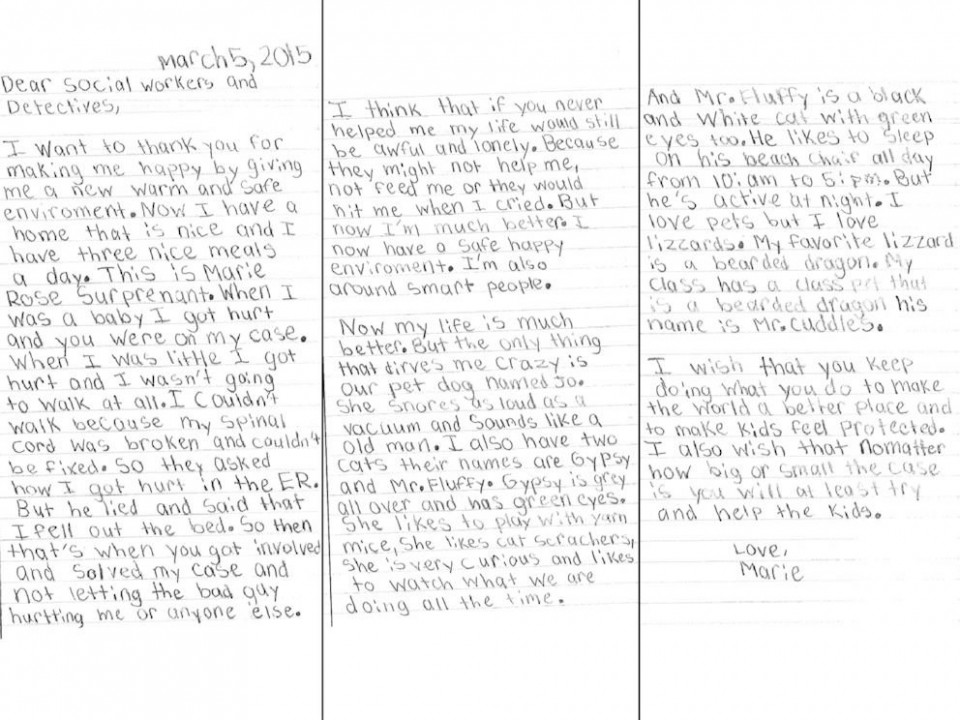 March 5, 2015
Dear Social workers and
Detectives,
I want to thank you for
making me happy by giving
me a new warm and safe
enviroment. Now I have a
home that is nice and I
have three nice meals
a day. This is Marie
Rose Surprenant. When I
was a baby I got hurt
and you were on my case.
When I was little I got
hurt and I wasn't going
to walk at all. I couldn't
walk because my spinal
cord was broken and couldn't
be fixed. So they asked
how I got hurt in the ER.
But he lied and said that
I fell out the bed. So then
that's when you got involved
and solved my case and
not letting the bad guy
hurtting me or anyone else.
I think that if you never
helped me my life would still
be awful and lonely. Because
they might not help me,
not feed me or they would
hit me when I cried. But
now I'm much better. I
now have a safe happy
enviroment. I'm also
around smart people.
Now my life is much
better. But the only thing
that dirves me crazy is
our pet dog named Jo.
She snores as loud as a
vacuum and sounds like a
old man. I also have two
cats their names are Gypsy
and Mr. Fluffy. Gypsy is grey
all over and has green eyes.
She likes to play with yarn
mice, She likes cat scrachers,
she is very curious and likes
to watch what we are
doing all the time.
And Mr. Fluffy is a black
and white cat with green
eyes too. He likes to sleep
on his beach chair all day
from 10:am to 5:pm. But
he's active at night. I
love pets but I love
lizzards. My favorite lizzard
is a bearded dragon. My
class has a class pet that
is a bearded dragon his
name is Mr. Cuddles.
I wish that you keep
doing what you do to make
the world a better place and
to make kids feel protected.
I also wish that nomatter
how big or small the case
is you will at least try
and help the kids.
Love,
Marie